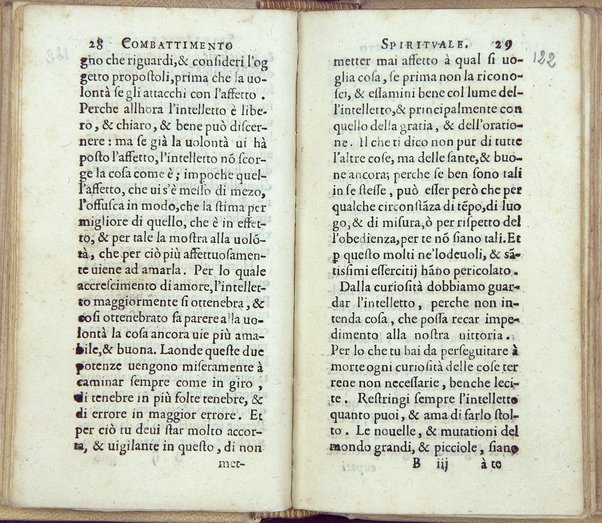 28 COMBATTIMENTO
gno che riguardi, & consideri l'og
getto propostoli, prima che la uo-
lontà se gli attacchi con l'affetto.
Perche allhora l'intelletto è libe-
ro, & chiaro, & bene può discer-
nere: ma se già la uolontà ui hà
posto l'affetto, l'intelletto nõ scor-
ge la cosa come è; impoche quel-
l'affetto, che ui s'è messo di mezo,
l'offusca in modo, che la stima per
migliore di quello, che è in effet-
to, & per tale la mostra alla uolõ-
tà, che per ciò più affettuosamen-
te uiene ad amarla. Per lo quale
accrescimento di amore, l'intellet-
to maggiormente si ottenebra, &
così ottenebrato fa parere alla uo-
lontà la cosa ancora uie più ama-
bile, & buona. Laonde queste due
potenze uengono miseramente à
caminar sempre come in giro,
di tenebre in più folte tenebre, &
di errore in maggior errore. Et
per ciò tu deui star molto accor-
ta, & uigilante in questo, di non
met-
SPIRITVALE. 29
122
metter mai affetto à qual si uo-
glia cosa, se prima non la ricono-
sci, & essamini bene col lume del-
l'intelletto, & principalmente con
quello della gratia, & dell'oratio-
ne. Il che ti dico non pur di tutte
l'altre cose, ma delle sante, & buo-
ne ancora; perche se ben sono tali
in se stesse, può esser però che per
qualche circonstãza di tẽpo, di luo-
go, & di misura, ò per rispetto del
l'obedienza, per te nõ siano tali. Et
p questo molti ne'lodeuoli, & sã-
tissimi essercitij hãno pericolato.
Dalla curiosità dobbiamo guar-
dar l'intelletto, perche non in-
tenda cosa, che possa recar impe-
dimento alla nostra uittoria.
Per lo che tu hai da perseguitare à
morte ogni curiosità delle cose ter
rene non necessarie, benche leci-
te. Restringi sempre l'intelletto
quanto puoi, & ama di farlo stol-
to. Le nouelle, & mutationi del
mondo grandi, & picciole, siano
B iij à te